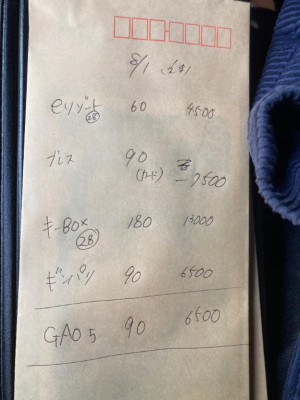 8/1 (土)
eリゾート 60 4500
㉘
ブレス 90
(カード) -7500
キーBOX 180 13000
㉘
ギンパリ 90 6500
GAO 5 90 6500